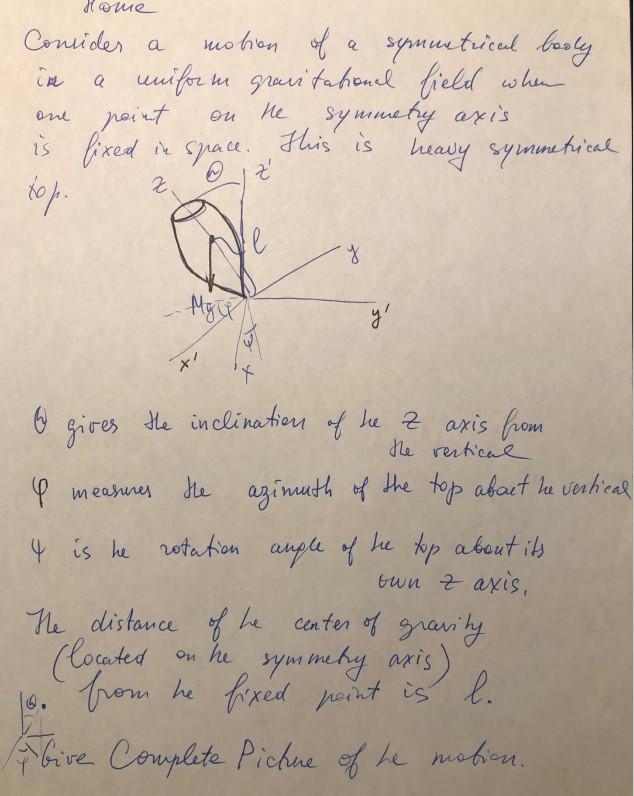 Home
Consider a motion of a symmetrical body
in a uniform gravitational field when
one point on he symmetry axis
is fixed in space. This is heavy symmetrical
top.
z
θ
z'
l
y
Mg
φ
y'
x'
ψ
x
θ gives the inclination of he z axis from
the vertical
φ measures the azimuth of the top about he vertical
ψ is he rotation angle of he top about its
own z axis.
The distance of he center of gravity
(located on he symmetry axis)
from he fixed point is l.
θ.
φ
Give Complete Picture of he motion.